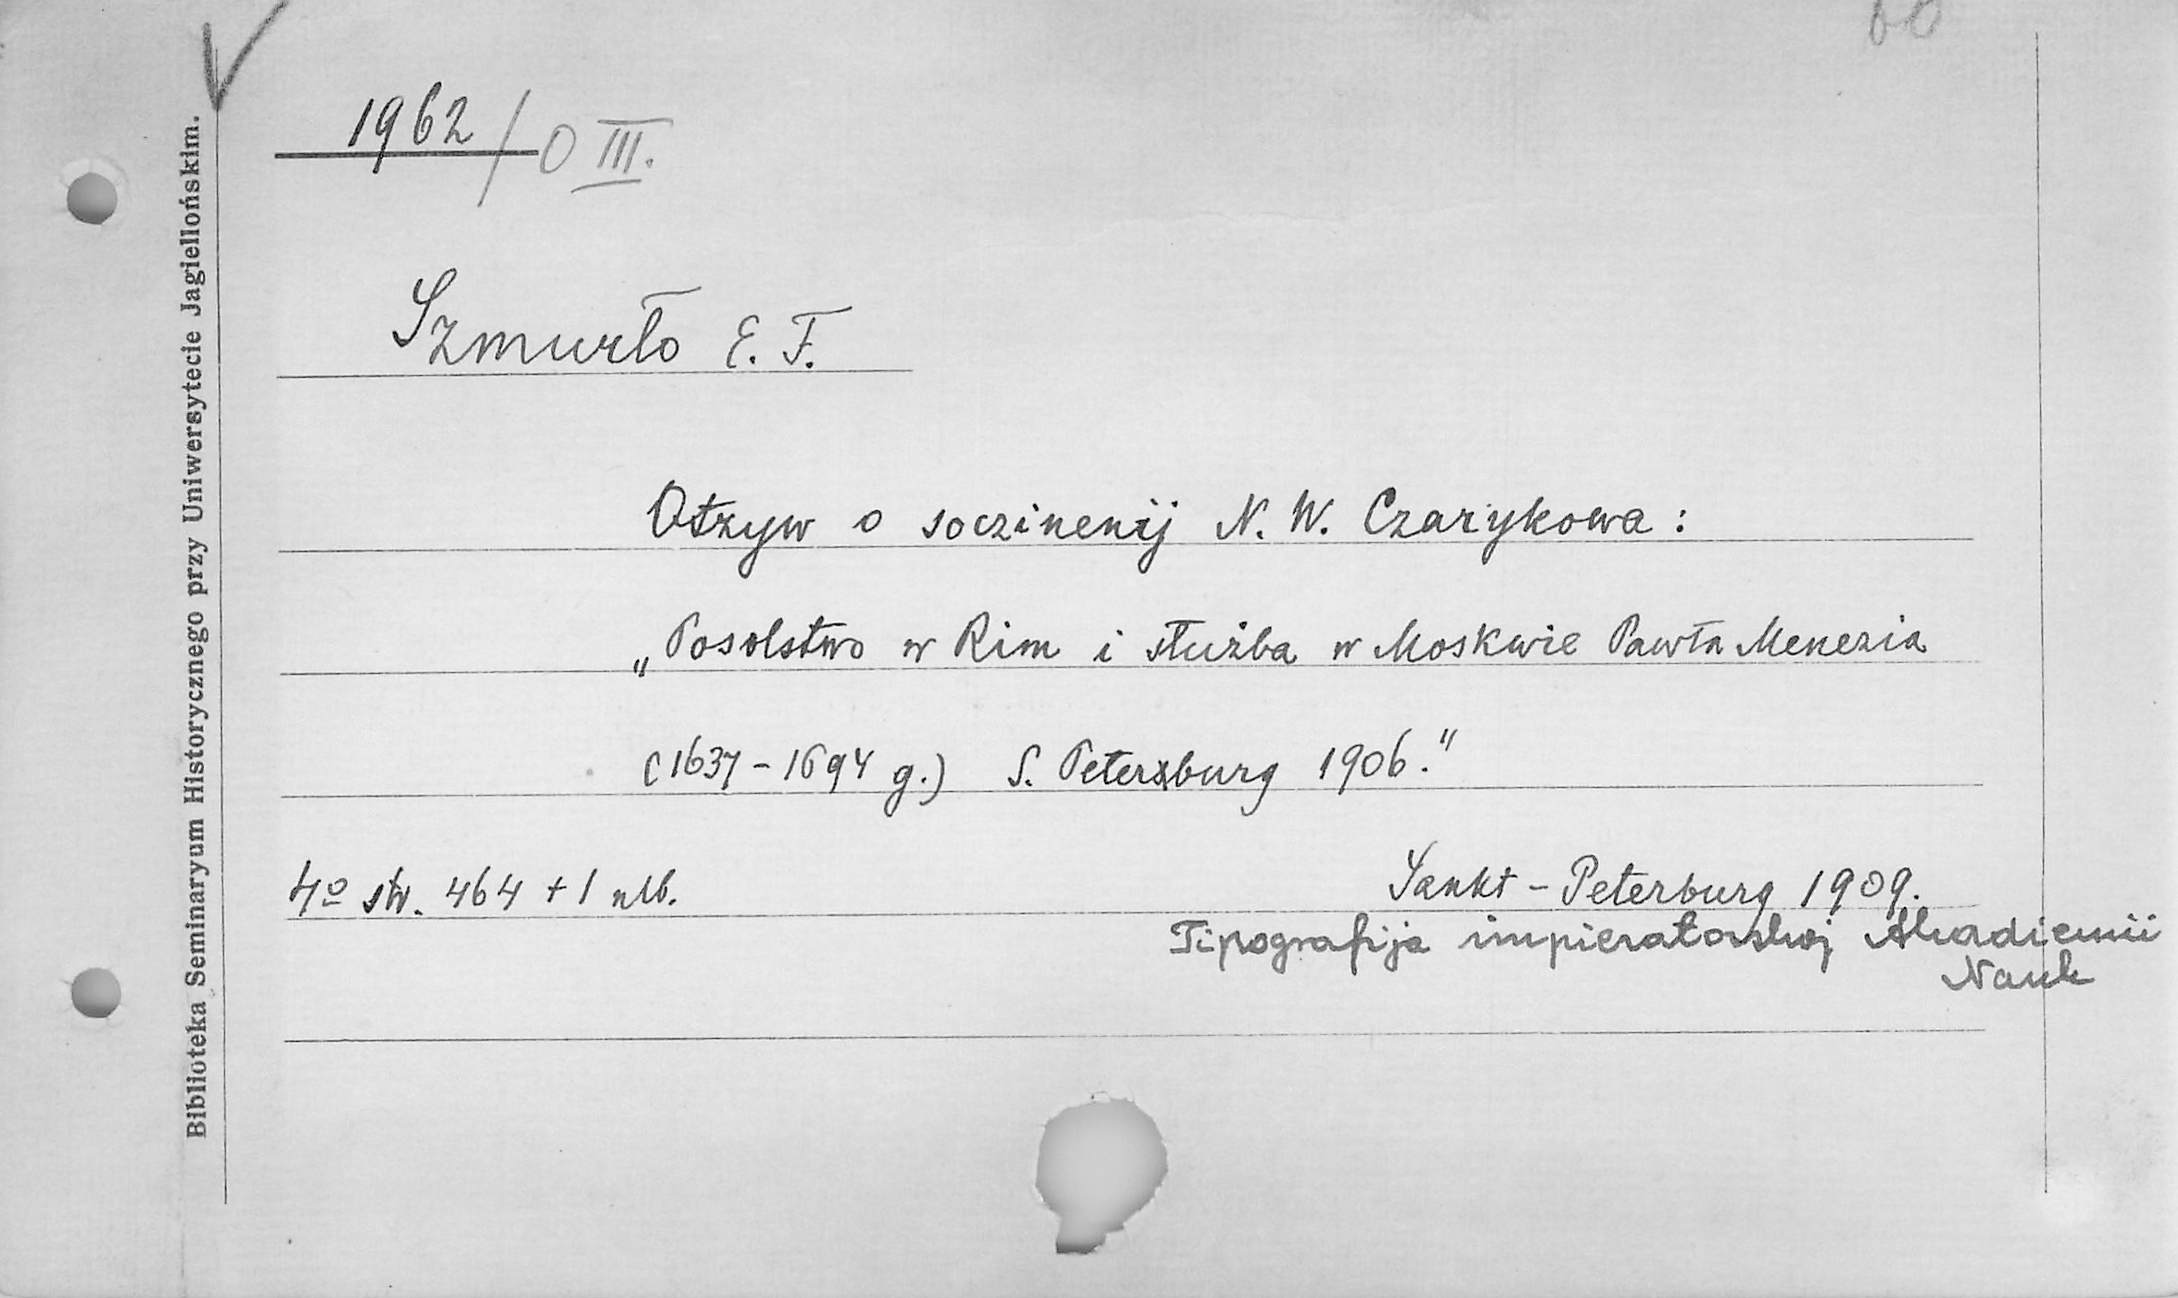 1962/O III.
Szmurło E. F.
Otzyw o soczinenij N. W. Czarykowa:
„Posolstwo w Rim i służba w Moskwie Pawła Menezia
(1637-1694 g.) S. Petersburg 1906."
4º str. 464 + 1 nlb.
Sankt-Peterburg 1909.
Tipografija impieratorskoj Akadiemii
Nauk
Biblioteka Seminaryum Historycznego przy Uniwersytecie Jagiellońskim.